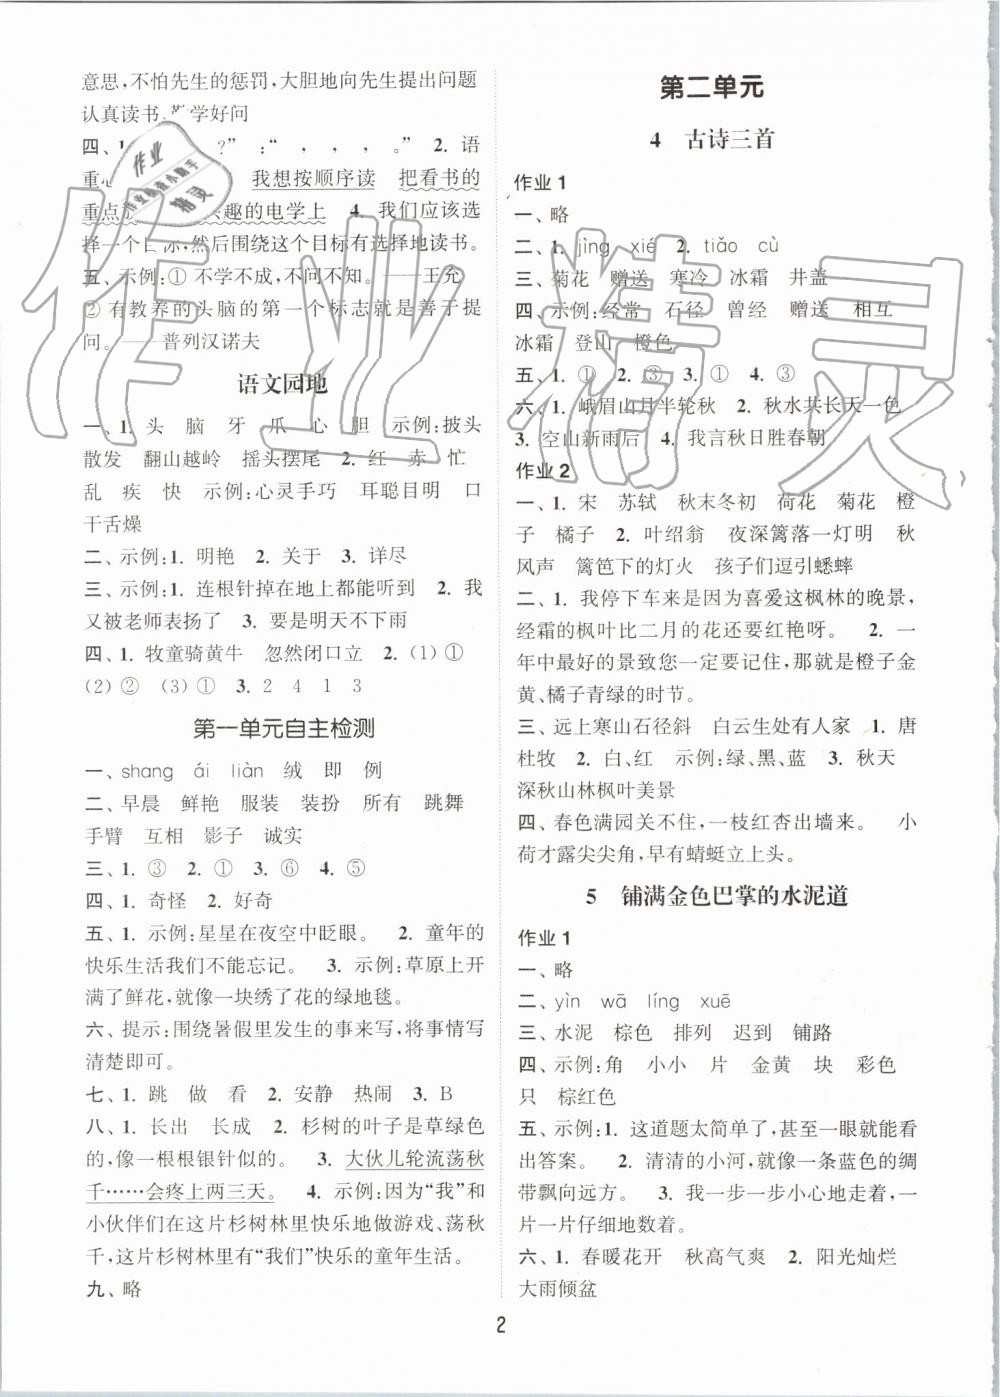 意思,不怕先生的惩罚,大胆地向先生提出问题
认真读书,勤学好问
四、1. ?” :“ , , , 。” 2. 语
重心 我想按顺序读 把看书的
重点 兴趣的电学上 4. 我们应该选
择一个目标,然后围绕这个目标有选择地读书。
五、示例:① 不学不成,不问不知。——王充
② 有教养的头脑的第一个标志就是善于提
问。——普列汉诺夫
语文园地
一、1. 头 脑 牙 爪 心 胆 示例:披头
散发 翻山越岭 摇头摆尾 2. 红 赤 忙
乱 疾 快 示例:心灵手巧 耳聪目明 口
干舌燥
二、示例:1. 明艳 2. 关于 3. 详尽
三、示例:1. 连根针掉在地上都能听到 2. 我
又被老师表扬了 3. 要是明天不下雨
四、1. 牧童骑黄牛 忽然闭口立 2. (1) ①
(2) ② (3) ① 3. 2 4 1 3
第一单元自主检测
一、shang ái liàn 绒 即 例
二、早晨 鲜艳 服装 装扮 所有 跳舞
手臂 互相 影子 诚实
三、1. ③ 2. ① 3. ⑥ 4. ⑤
四、1. 奇怪 2. 好奇
五、1. 示例:星星在夜空中眨眼。 2. 童年的
快乐生活我们不能忘记。 3. 示例:草原上开
满了鲜花,就像一块绣了花的绿地毯。
六、提示:围绕暑假里发生的事来写,将事情写
清楚即可。
七、1. 跳 做 看 2. 安静 热闹 3. B
八、1. 长出 长成 2. 杉树的叶子是草绿色
的,像一根根银针似的。 3. 大伙儿轮流荡秋
千……会疼上两三天。 4. 示例:因为“我”和
小伙伴们在这片杉树林里快乐地做游戏、荡秋
千,这片杉树林里有“我们”快乐的童年生活。
九、略
第二单元
4 古诗三首
作业 1
一、略
二、1. jìng xié 2. tiǎo cù
三、菊花 赠送 寒冷 冰霜 井盖
四、示例:经常 石径 曾经 赠送 相互
冰霜 登山 橙色
五、1. ① 2. ③ 3. ① 4. ③
六、1. 峨眉山月半轮秋 2. 秋水共长天一色
3. 空山新雨后 4. 我言秋日胜春朝
作业 2
一、1. 宋 苏轼 秋末冬初 荷花 菊花 橙
子 橘子 2. 叶绍翁 夜深篱落一灯明 秋
风声 篱笆下的灯火 孩子们逗引蟋蟀
二、1. 我停下车来是因为喜爱这枫林的晚景,
经霜的枫叶比二月的花还要红艳呀。 2. 一
年中最好的景致您一定要记住,那就是橙子金
黄、橘子青绿的时节。
三、远上寒山石径斜 白云生处有人家 1. 唐
杜牧 2. 白、红 示例:绿、黑、蓝 3. 秋天
深秋山林枫叶美景
四、春色满园关不住,一枝红杏出墙来。 小
荷才露尖尖角,早有蜻蜓立上头。
5 铺满金色巴掌的水泥道
作业 1
一、略
二、yìn wā líng xuē
三、水泥 棕色 排列 迟到 铺路
四、示例:角 小小 片 金黄 块 彩色
只 棕红色
五、示例:1. 这道题太简单了,甚至一眼就能看
出答案。 2. 清清的小河,就像一条蓝色的绸
带飘向远方。 3. 我一步一步小心地走着,一
片一片仔细地数着。
六、1. 春暖花开 秋高气爽 2. 阳光灿烂
大雨倾盆
2
作业精灵
作业
作业检查小助手
精灵